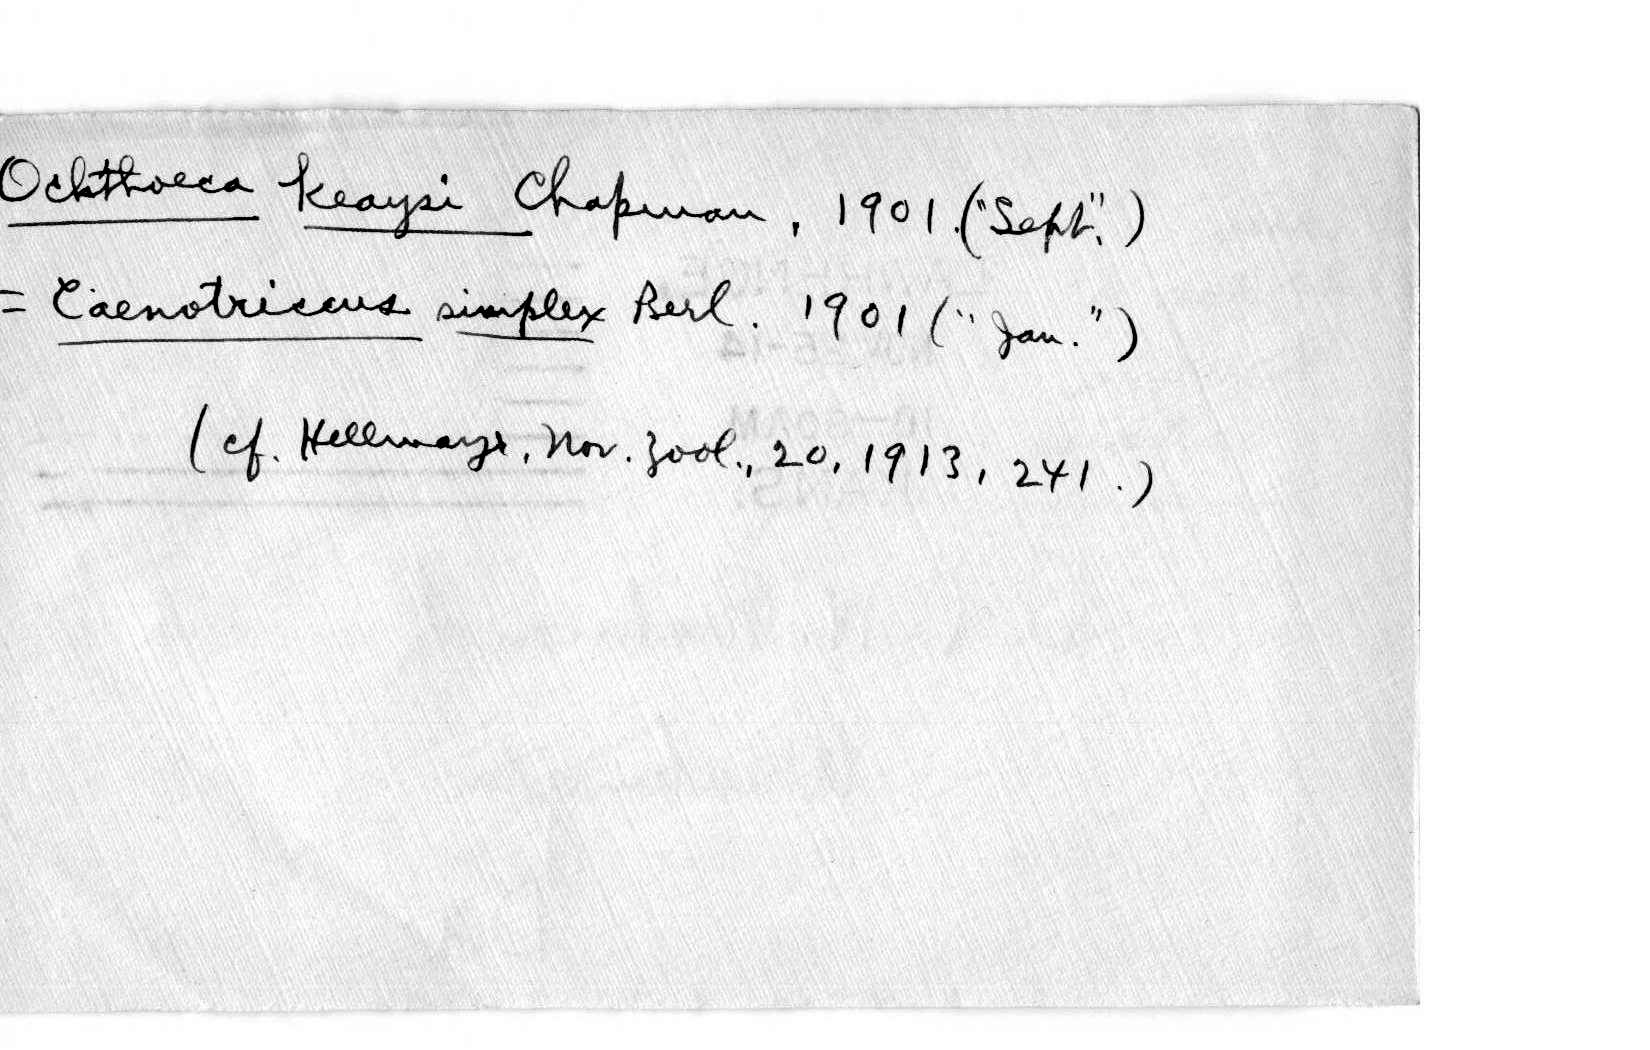 Ochthoeca keaysi Chapman, 1901. ("Sept".)
= Caenotriccus simplex Berl. 1901 ("Jan.")
(cf. Hellmayr, Nov. Zool., 20, 1913, 241.)